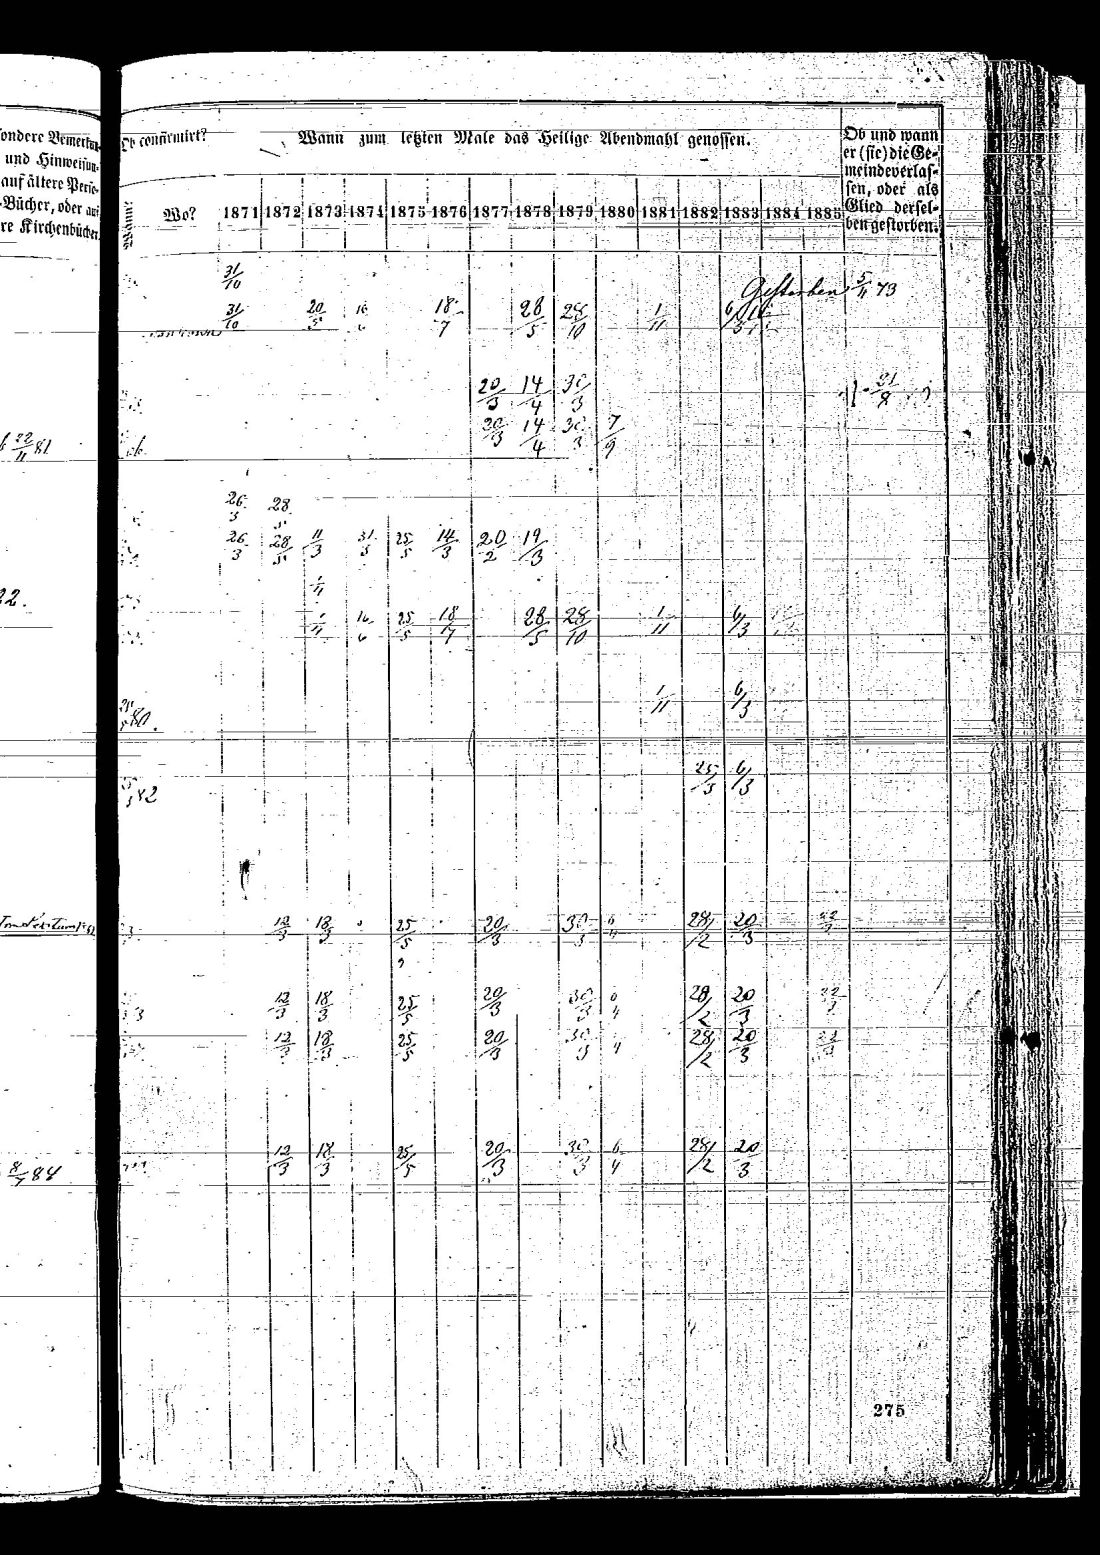 sondere Bemerkun-
und Hinweisun-
auf ältere Perso-
-Bücher, oder auf
re Kirchenbücher.
Ob confirmirt? Wann zum letzten Male das Heilige Abendmahl genossen. Ob und wann
er (sie) die Ge-
meindeverlas-
sen, oder als
Glied dersel-
ben gestorben.
Wann? Wo? 1871 1872 1873 1874 1875 1876 1877 1878 1879 1880 1881 1882 1883 1884 1885
31/10 Gestorben 5/11 73
31/10 20/5 16/6 18/7 28/5 28/10 1/11 6/3
20/3 14/4 30/3
22/11 81 20/3 14/4 30/3 7/9
26/3 28/5
26/3 28/5 11/3 31/5 25/5 14/3 20/2 19/3
1/11
22.
1/11 16/6 25/5 18/7 28/5 28/10 1/11 6/3
80. 1/11 6/3
82 25/3 6/3
12/3 18/3 25/5 20/3 30/3 6/4 28/2 20/3 22/3
12/3 18/3 25/5 20/3 30/3 6/4 28/2 20/3 22/3
12/3 18/3 25/5 20/3 30/3 4 28/2 20/3 22/3
8/7 84 12/3 18/3 25/5 20/3 30/3 6/4 28/2 20/3
275